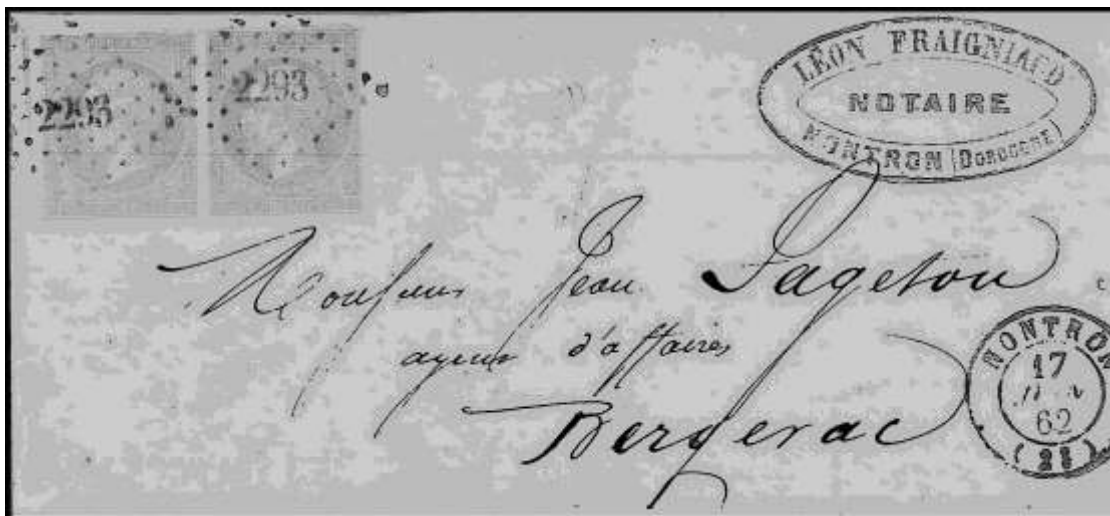 2293
2293
LÉON FRAIGNIAUD
NOTAIRE
NONTRON (DORDOGNE)
Monsieur Jean Lageton
agent d'affaires
Bergerac
NONTRON
17
62
(23)